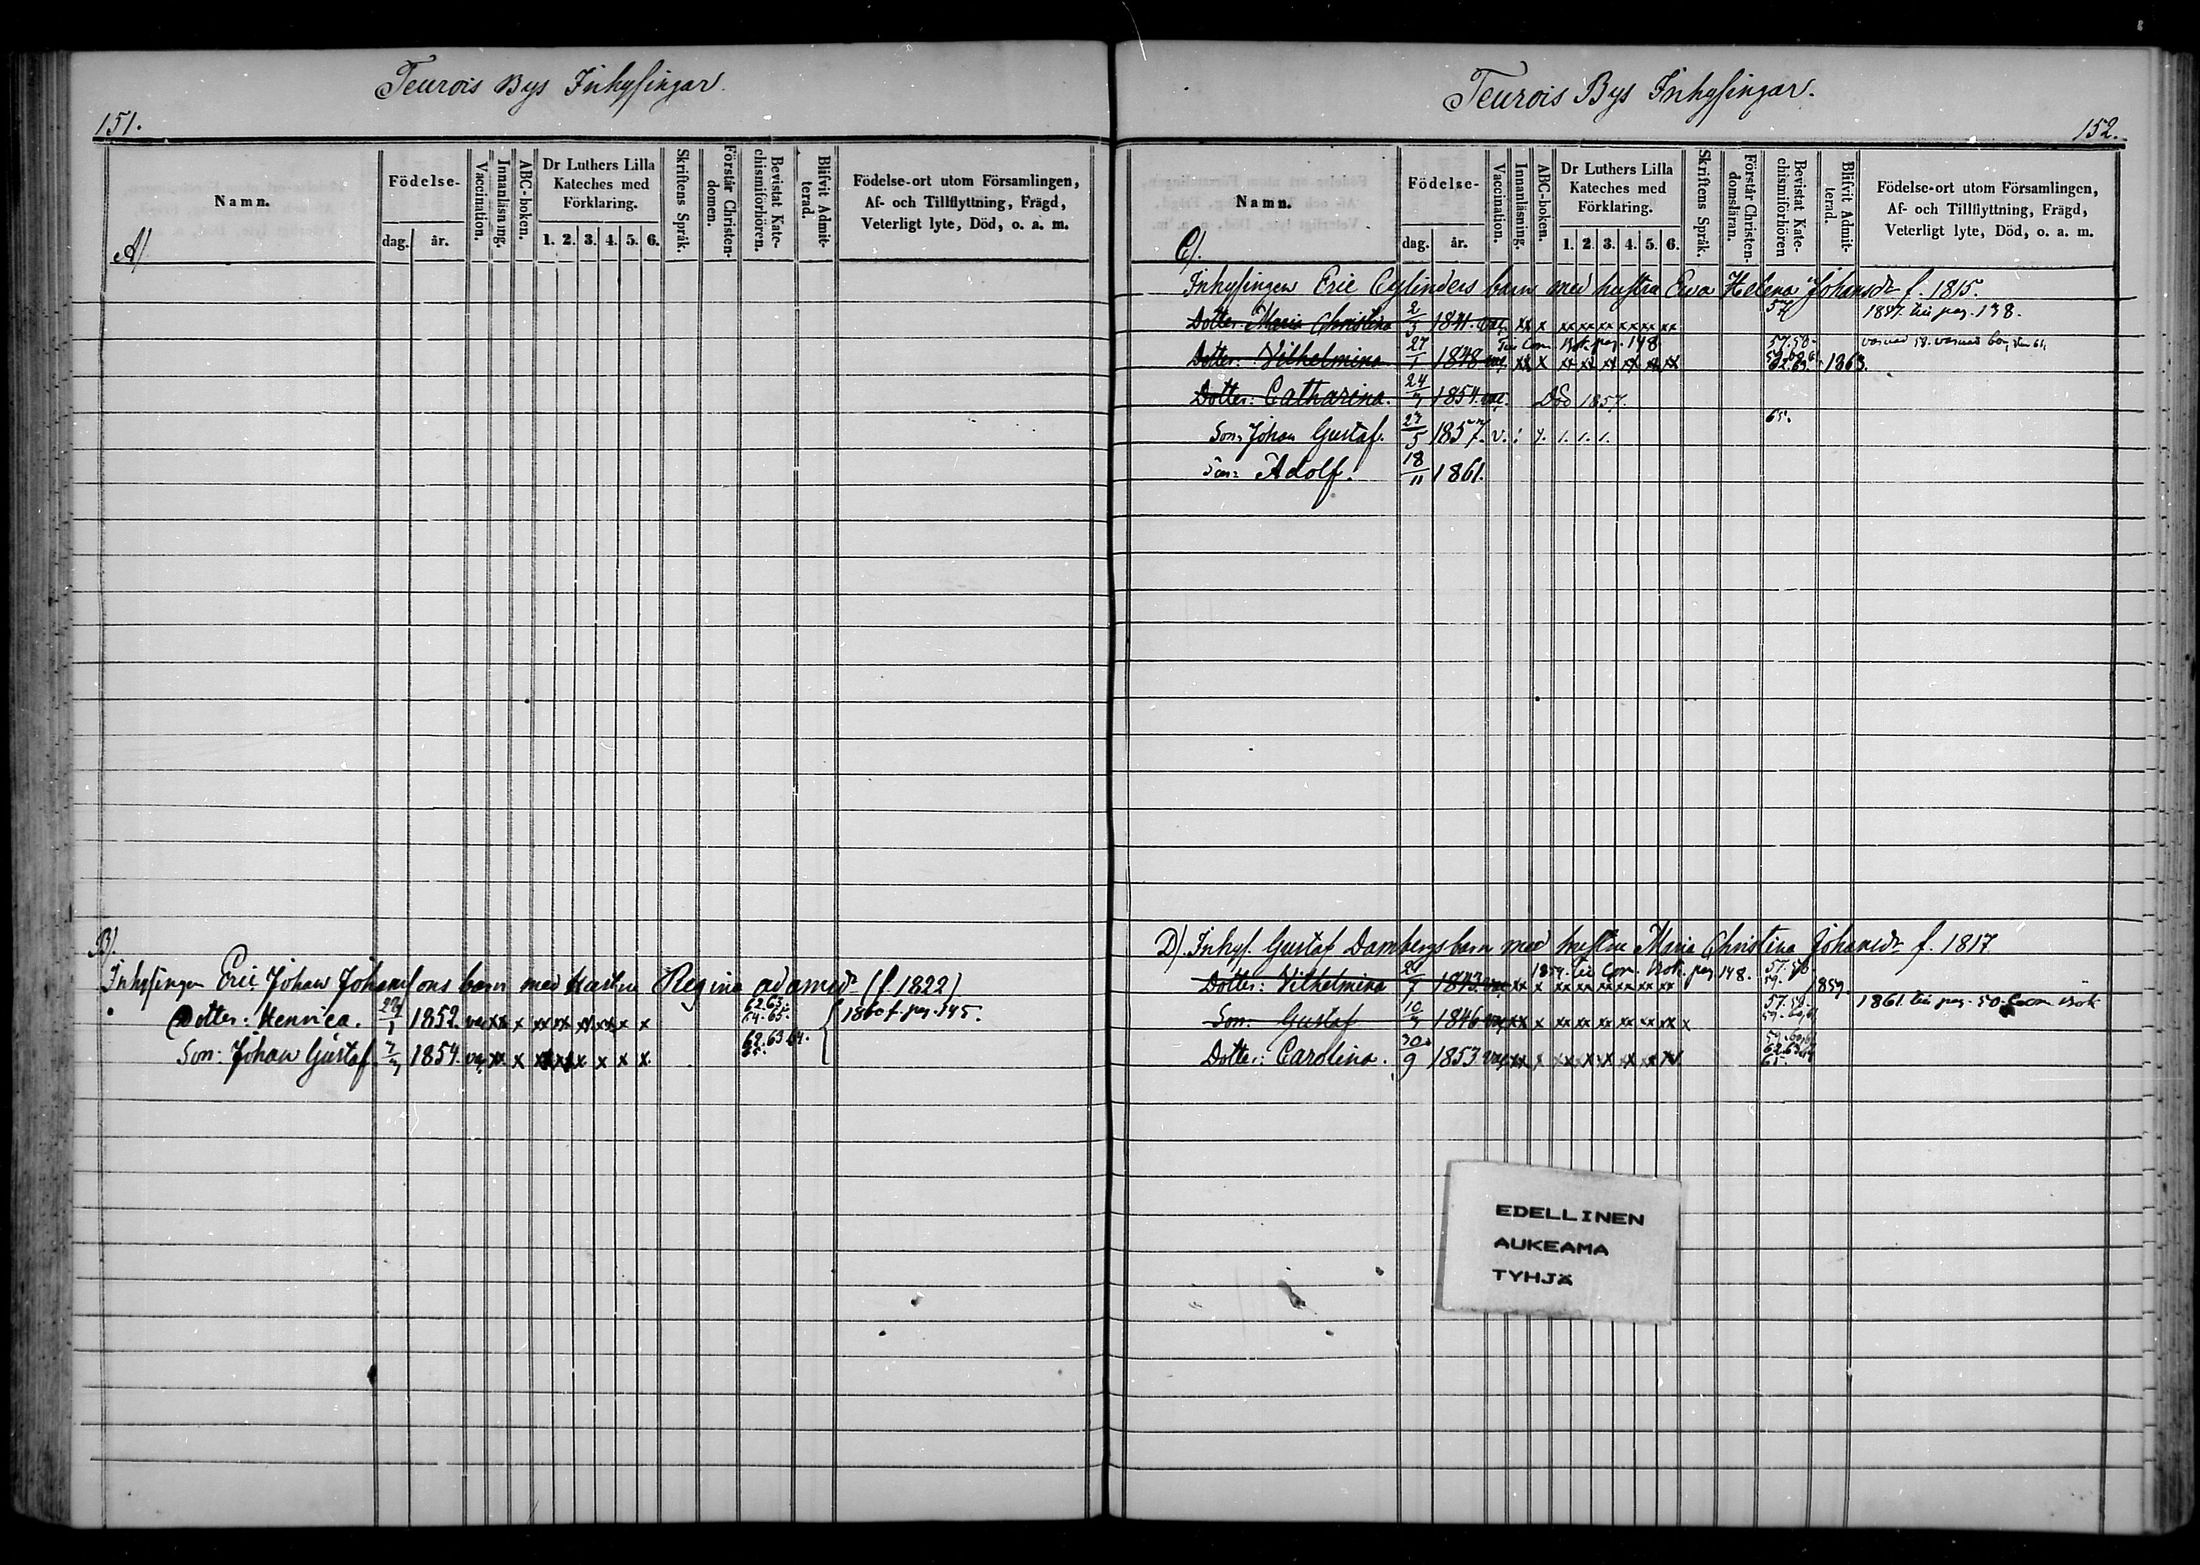 Teurois Bys Inhysingar.
151.
Namn.
Födelse-
dag.
år.
Vaccination.
Innanläsning.
ABC-boken.
Dr Luthers Lilla
Kateches med
Förklaring.
1. 2. 3. 4. 5. 6.
Skriftens Språk.
Förstår Christen-
domen.
Bevistat Kate-
chismiförhören.
Blifvit Admit-
terad.
Födelse-ort utom Församlingen,
Af- och Tillflyttning, Frägd,
Veterligt lyte, Död, o. a. m.
A/
B/.
Inhysingen Eric Johan Johanssons barn med hustru Regina Adamsdr (f. 1822)
Dotter: Henrica. 1852. vac xx x xx xx xx xx x x 62.63. 64.65. 1860 f. pag. 145.
Son: Johan Gustaf. 1854. vac xx x x x x x 62.63 64. 65.
Teurois Bys Inhysingar.
152.
Namn.
Födelse-
dag.
år.
Vaccination.
Innanläsning.
ABC-boken.
Dr Luthers Lilla
Kateches med
Förklaring.
1. 2. 3. 4. 5. 6.
Skriftens Språk.
Förstår Christen-
domsläran.
Bevistat Kate-
chismiförhören
Blifvit Admit-
terad.
Födelse-ort utom Församlingen,
Af- och Tillflyttning, Frägd,
Veterligt lyte, Död, o. a. m.
C/.
Inhysingen Eric Cylinders barn med hustru Eva Helena Johansdr f. 1815.
Dotter: Maria Christina 2/3 1841. vac. xx x xx xx xx xx xx xx 57 1857. till pag. 138.
Till Com. Bok. pag. 148 57.58.
Dotter: Vilhelmina 27/1 1848 vac xx x xx xx xx xx xx xx 62.63. 1863.
Dotter: Catharina. 1854. vac. Död 1857.
Son: Johan Gustaf. 23/5 1857. v. 1. 1. 1. 65.
Son: Adolf. 18/11 1861.
D/. Inhys. Gustaf Dambergs barn med hustru Maria Christina Johansdr f. 1817
1859. till Com. Bok. pag. 148. 57.58.
Dotter: Vilhelmina 1843 vac xx x xx xx xx xx xx xx 59. 1859.
Son: Gustaf 1846 vac xx x xx xx xx xx xx xx x 57.58. 1861 till pag. 50. Com. Bok
Dotter: Carolina. 30/9 1853 vac xx x xx x x x x xx 65.
EDELLINEN
AUKEAMA
TYHJÄ